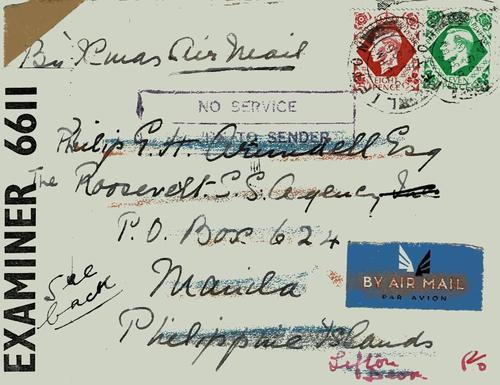 By Xmas Air Mail
EIGHT
PENCE
NO SERVICE
TO SENDER
Philip G. H. Arundell Esq
The Roosevelt S.S. Agency Inc
P.O. Box 624
Manila
Philippine Islands
EXAMINER 6611
See
back
BY AIR MAIL
PAR AVION